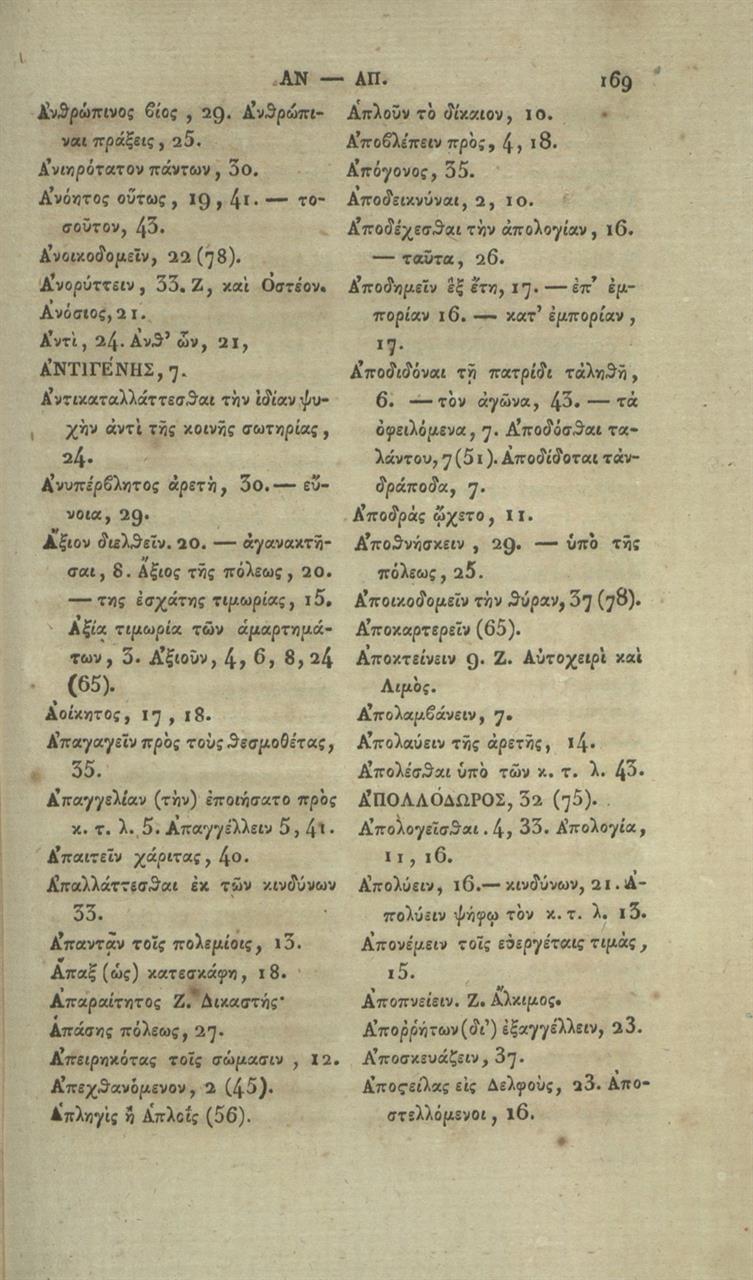 ΑΝ — ΑΠ. 169
Ἀνθρώπινος βίος, 29. Ἀνθρώπι-
ναι πράξεις, 25.
Ἀνιηρότατον πάντων, 30.
Ἀνόητος οὕτως, 19, 41. — το-
σοῦτον, 43.
Ἀνοικοδομεῖν, 22 (78).
Ἀνορύττειν, 33. Ζ, καὶ Ὀστέον.
Ἀνόσιος, 21.
Ἀντὶ, 24. Ἀνθ’ ὧν, 21,
ἈΝΤΙΓΕΝΗΣ, 7.
Ἀντικαταλλάττεσθαι τὴν ἰδίαν ψυ-
χὴν ἀντὶ τῆς κοινῆς σωτηρίας,
24.
Ἀνυπέρβλητος ἀρετὴ, 30. — εὔ-
νοια, 29.
Ἄξιον διελθεῖν. 20. — ἀγανακτῆ-
σαι, 8. Ἄξιος τῆς πόλεως, 20.
— της ἐσχάτης τιμωρίας, 15.
Ἀξία τιμωρία τῶν ἁμαρτημά-
των, 3. Ἀξιοῦν, 4, 6, 8, 24
(65).
Ἀοίκητος, 17, 18.
Ἀπαγαγεῖν πρὸς τοὺς θεσμοθέτας,
35.
Ἀπαγγελίαν (τὴν) ἐποιήσατο πρὸς
κ. τ. λ. 5. Ἀπαγγέλλειν 5, 41.
Ἀπαιτεῖν χάριτας, 40.
Ἀπαλλάττεσθαι ἐκ τῶν κινδύνων
33.
Ἀπαντᾶν τοῖς πολεμίοις, 13.
Ἅπαξ (ὡς) κατεσκάφη, 18.
Ἀπαραίτητος Ζ. Δικαστής·
Ἁπάσης πόλεως, 27.
Ἀπειρηκότας τοῖς σώμασιν, 12.
Ἀπεχθανόμενον, 2 (45).
Ἁπληγὶς ἢ Ἁπλοΐς (56).
Ἁπλοῦν τὸ δίκαιον, 10.
Ἀποβλέπειν πρὸς, 4, 18.
Ἀπόγονος, 35.
Ἀποδεικνύναι, 2, 10.
Ἀποδέχεσθαι τὴν ἀπολογίαν, 16.
— ταῦτα, 26.
Ἀποδημεῖν ἓξ ἔτη, 17. — ἐπ’ ἐμ-
πορίαν 16. — κατ’ ἐμπορίαν,
17.
Ἀποδιδόναι τῇ πατρίδι τἀληθῆ,
6. — τὸν ἀγῶνα, 43. — τὰ
ὀφειλόμενα, 7. Ἀποδόσθαι τα-
λάντου, 7 (51). Ἀποδίδοται τἀν-
δράποδα, 7.
Ἀποδρὰς ᾤχετο, 11.
Ἀποθνήσκειν, 29. — ὑπὸ τῆς
πόλεως, 25.
Ἀποικοδομεῖν τὴν θύραν, 37 (78).
Ἀποκαρτερεῖν (65).
Ἀποκτείνειν 9. Ζ. Αὐτοχειρὶ καὶ
Λιμὸς.
Ἀπολαμβάνειν, 7.
Ἀπολαύειν τῆς ἀρετῆς, 14.
Ἀπολέσθαι ὑπὸ τῶν κ. τ. λ. 43.
ἈΠΟΛΛΟΔΩΡΟΣ, 32 (75).
Ἀπολογεῖσθαι. 4, 33. Ἀπολογία,
11, 16.
Ἀπολύειν, 16. — κινδύνων, 21. Ἀ-
πολύειν ψήφῳ τὸν κ. τ. λ. 13.
Ἀπονέμειν τοῖς εὐεργέταις τιμὰς,
15.
Ἀποπνείειν. Ζ. Ἄλκιμος.
Ἀποῤῥήτων (δι’) ἐξαγγέλλειν, 23.
Ἀποσκευάζειν, 37.
Ἀποςείλας εἰς Δελφοὺς, 23. Ἀπο-
στελλόμενοι, 16.